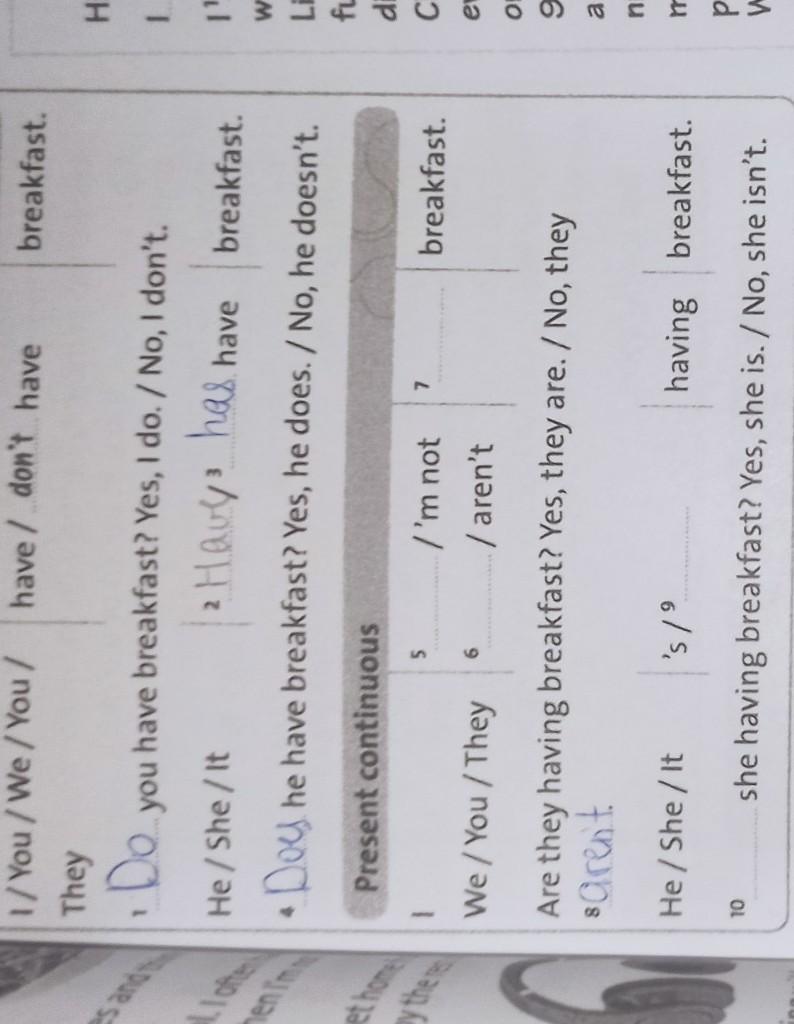 I / You / We / You / have / don't have breakfast.
They
1 Do you have breakfast? Yes, I do. / No, I don't.
He / She / It 2 / 3 has have breakfast.
4 Does he have breakfast? Yes, he does. / No, he doesn't.
Present continuous
I 5 / 'm not 7 breakfast.
We / You / They 6 / aren't
Are they having breakfast? Yes, they are. / No, they
8 aren't.
He / She / It 's / 9 having breakfast.
10 she having breakfast? Yes, she is. / No, she isn't.